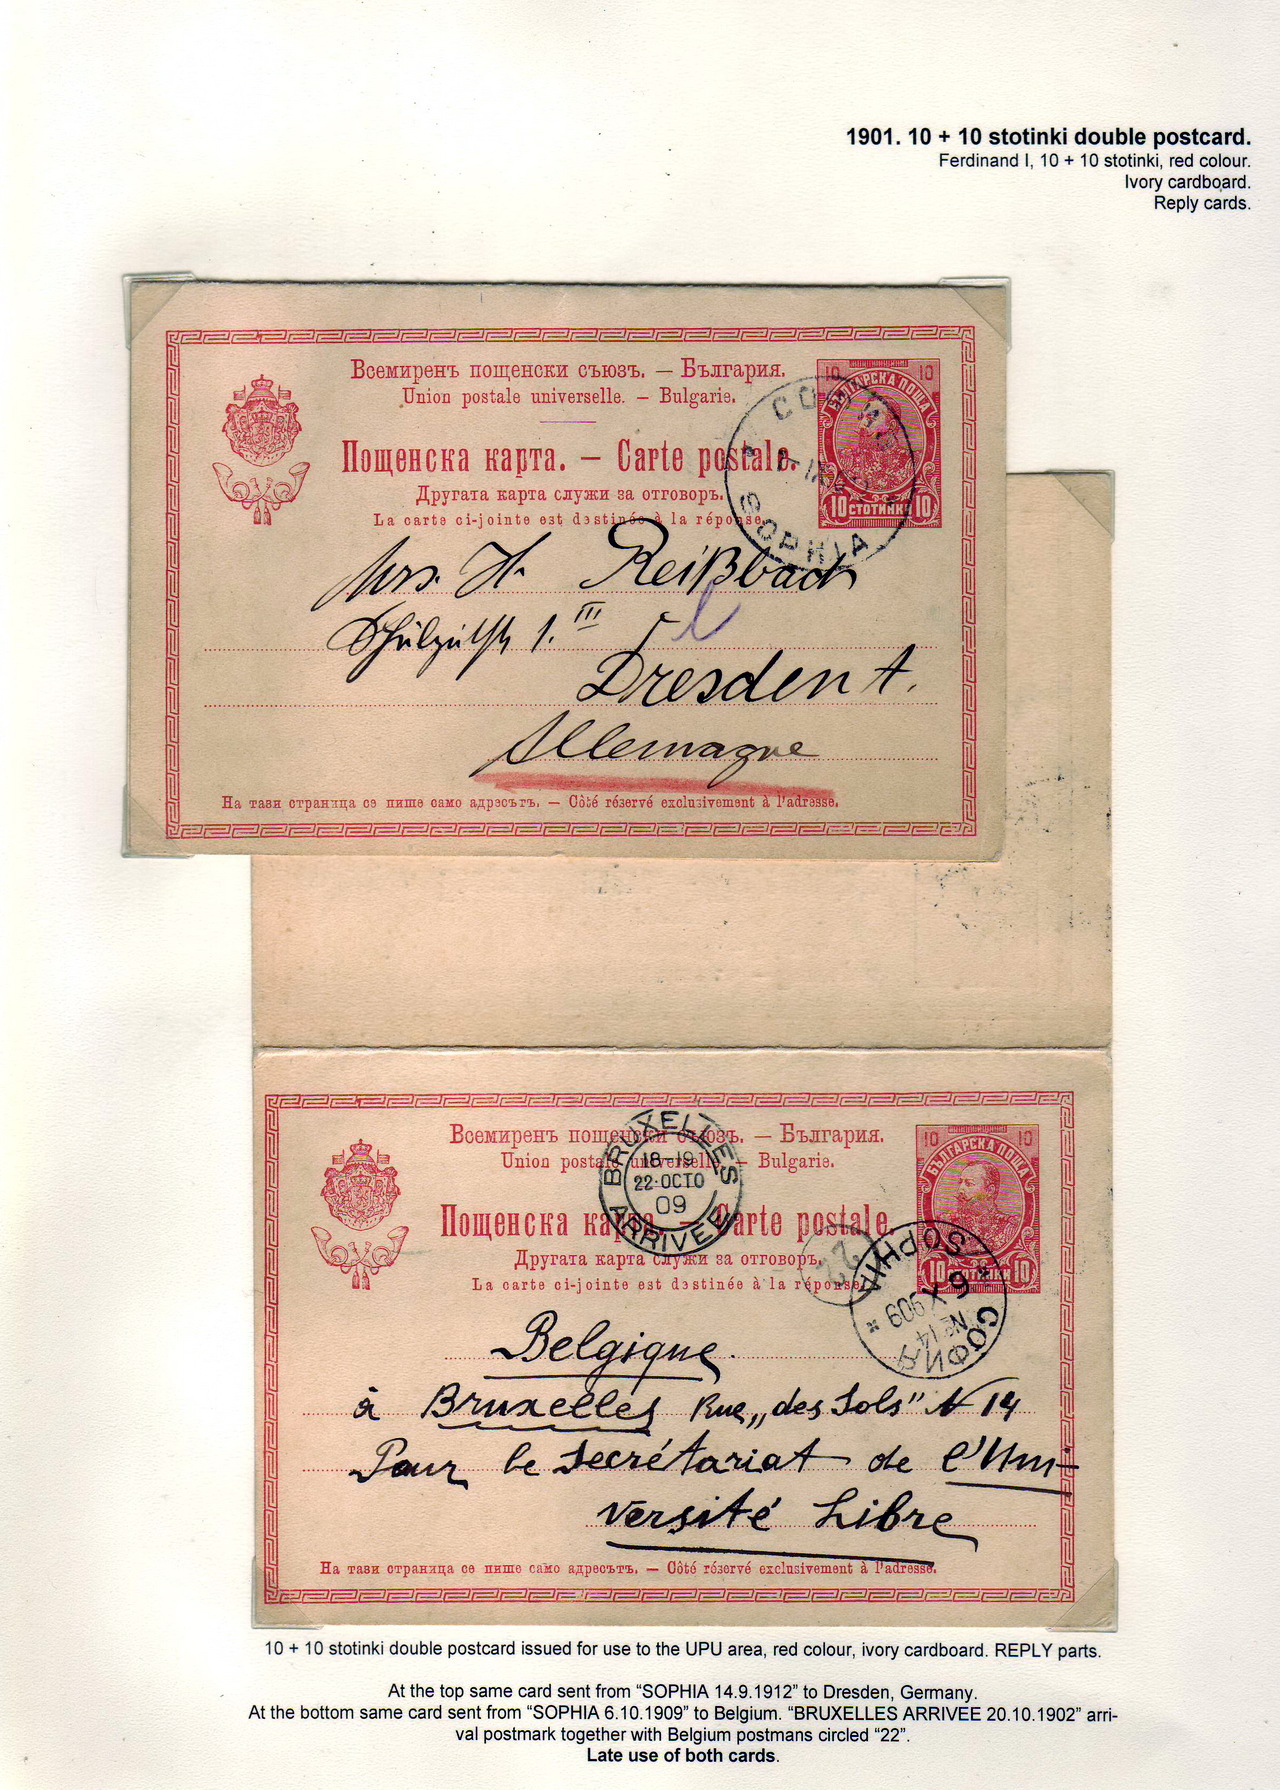 1901. 10 + 10 stotinki double postcard.
Ferdinand I, 10 + 10 stotinki, red colour.
Ivory cardboard.
Reply cards.
Всемиренъ пощенски съюзъ. — България.
Union postale universelle. — Bulgarie.
10 10
БЪЛГАРСКА ПОЩА
10 СТОТИНКИ 10
Пощенска карта. — Carte postale.
Другата карта служи за отговоръ.
La carte ci-jointe est destinée à la réponse.
SOPHIA
Mrs. H. Reißbach
1. III
Dresden A.
Allemagne
На тази страница се пише само адресътъ. — Côté réservé exclusivement à l'adresse.
Всемиренъ пощенски съюзъ. — България.
Union postale universelle. — Bulgarie.
BRUXELLES
18-19
22·OCTO
09
ARRIVEE
10 10
БЪЛГАРСКА ПОЩА
10 СТОТИНКИ 10
Пощенска карта. — Carte postale.
Другата карта служи за отговоръ.
La carte ci-jointe est destinée à la réponse.
22
SOPHIA
6 X 909
№ 14
СОФИЯ
Belgique.
à Bruxelles Rue „des Sols" N 14
Pour le Secrétariat de l'Uni-
versité Libre
На тази страница се пише само адресътъ. — Côté réservé exclusivement à l'adresse.
10 + 10 stotinki double postcard issued for use to the UPU area, red colour, ivory cardboard. REPLY parts.
At the top same card sent from “SOPHIA 14.9.1912” to Dresden, Germany.
At the bottom same card sent from “SOPHIA 6.10.1909” to Belgium. “BRUXELLES ARRIVEE 20.10.1902” arri-
val postmark together with Belgium postmans circled “22”.
Late use of both cards.